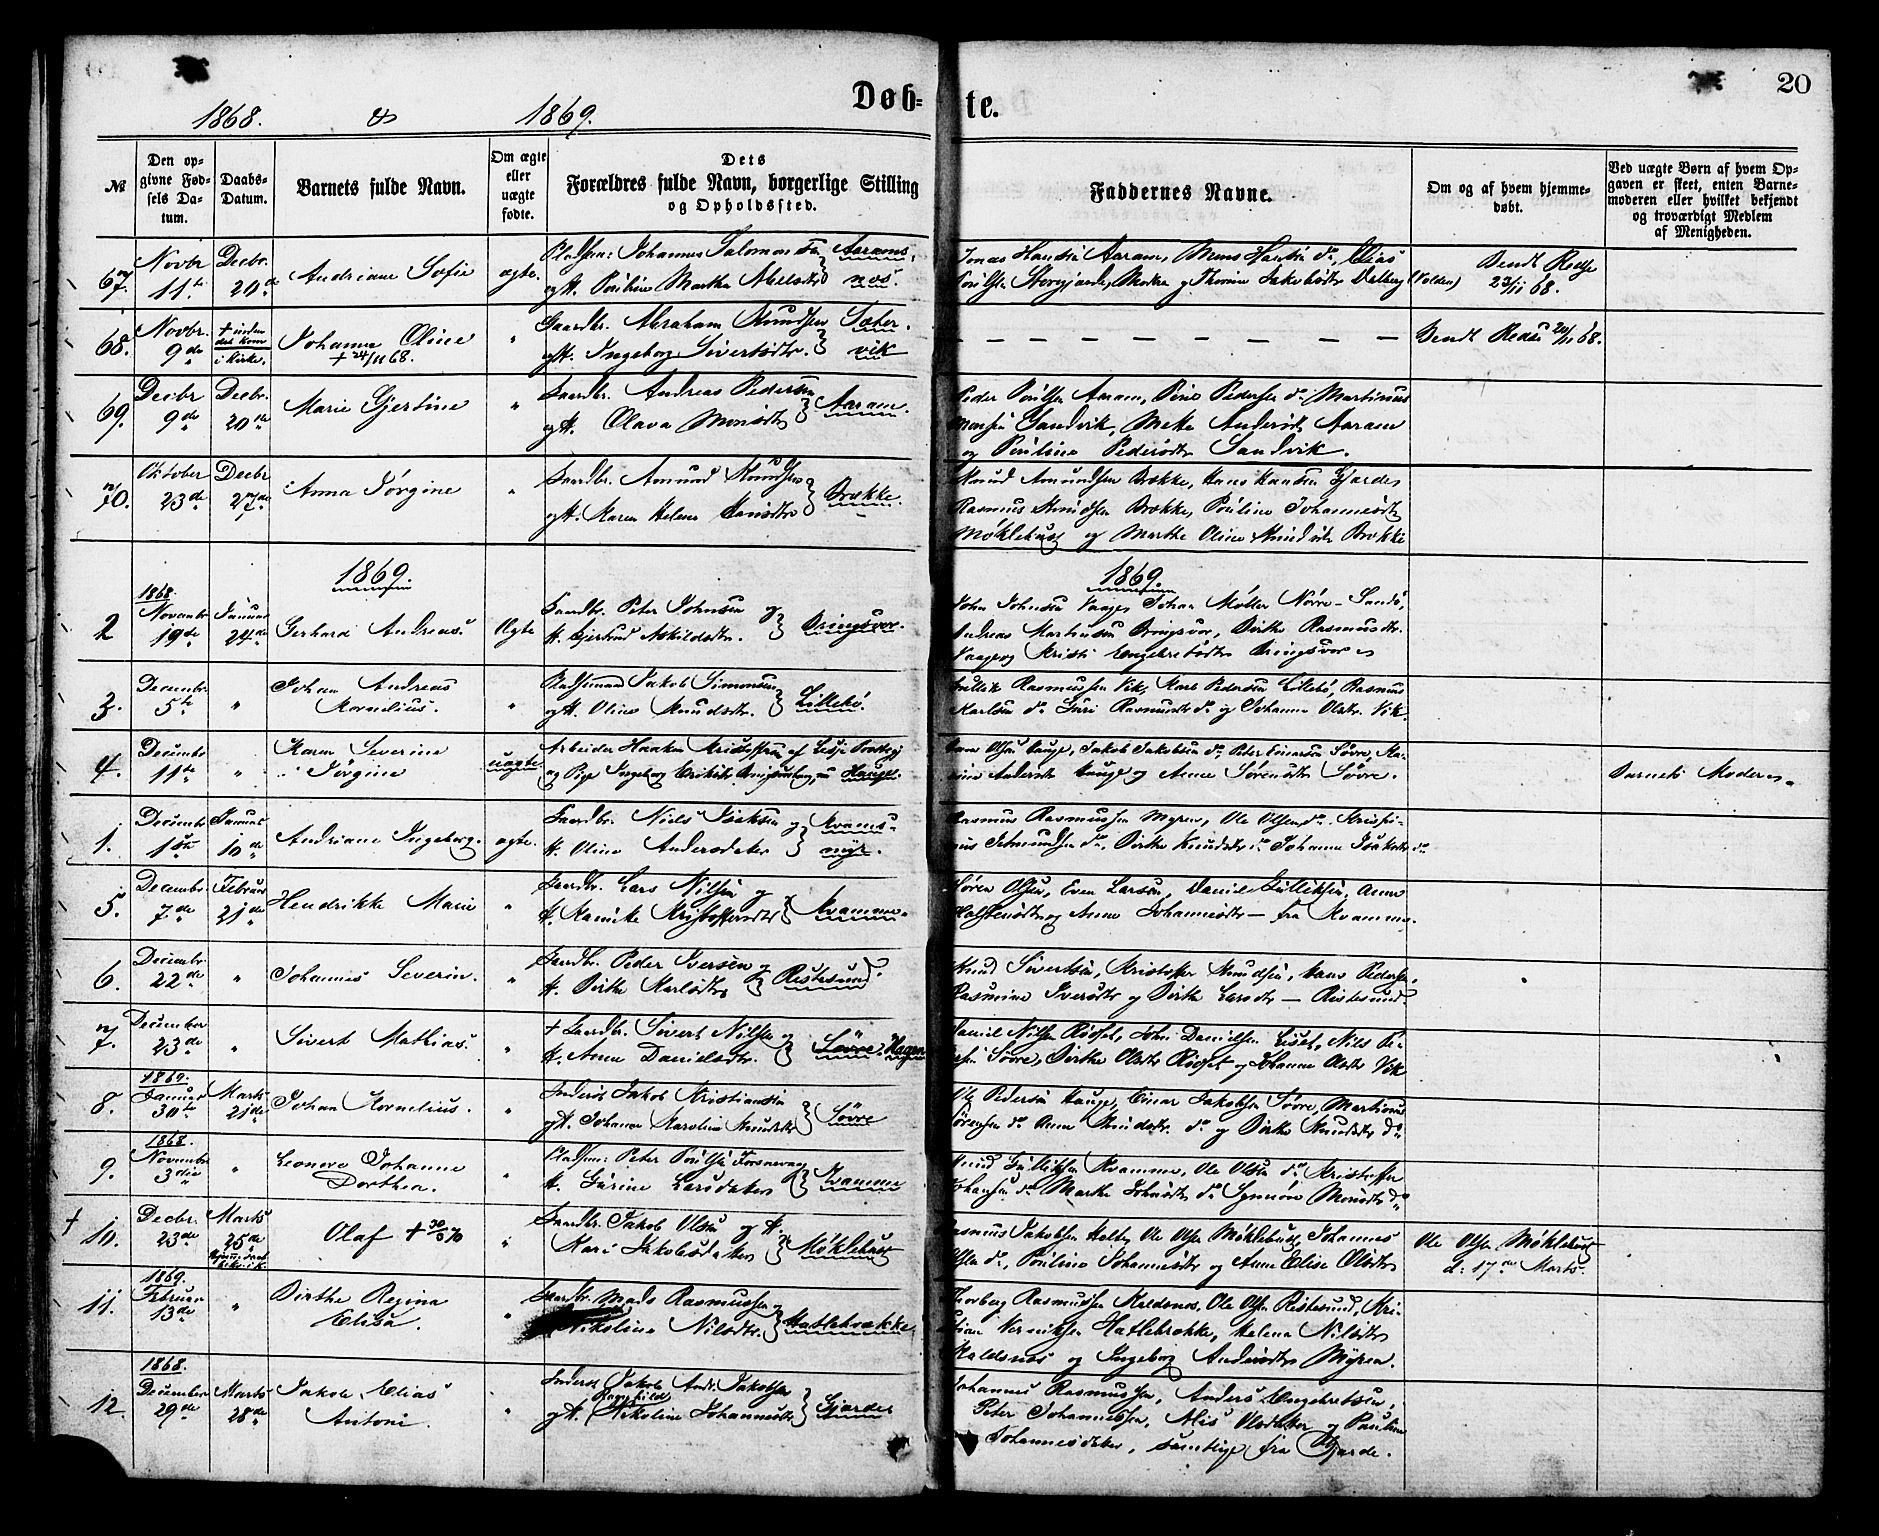 20
1868. & 1869.
Døb- te.
№
Den opgivne Fødsels Datum.
Daabs-Datum.
Barnets fulde Navn.
Om ægte eller uægte fødte.
Dets Forældres fulde Navn, borgerlige Stilling og Opholdssted.
Faddernes Navne.
Om og af hvem hjemmedøbt.
Ved uægte Børn af hvem Opgaven er skeet, enten Barnemoderen eller hvilket bekjendt og troværdigt Medlem af Menigheden.
67. Novbr 11te Decbr. 20de Andriane Sofie ægte. Johannes Salomonsen Aarams-
og H. Martha nes.
Jonas Hansen Aaram, Mons Hansen do, Elias
23/11 68.
68. Novbr. 9de + inden det kom i Kirke. Johanne Oline " Gaardbr. Abraham Knudsen Sæter-
+ 24/11 68. og H. Ingeborg Sivertsdtr. vik
Bendt Redse 20/11 68.
69. Decbr 9de Decbr. 20de Marie Gjertine " Gaardbr. Andreas Pedersen
og H. Olava Monsdtr Aaram.
Peder Poulsen Aaram, Pedersen do, Martinus
Monsen Sandvik, Andersdtr Aaram
og Pouline Pedersdtr Sandvik.
70. Oktober 23de Decbr 27de Anna Jørgine " Gaardbr. Amund Knudsen
og H. Karen Helene Hansdtr Brække.
Knud Amundsen Brække, Hans Hansen Gjarde,
Rasmus Knudsen Brække, Pouline Johannesdtr
Møklebust og Marthe Oline Brække
1869. 1869.
2 1868. Novembr 19de Januar 24de Gerhard Andreas Ægte Gaardbr. Peter Johnsen og
H. Gjertrud Askildsdtr. Bringsvor.
John Johnsen Vaage, Johan Møller Nørre-Sandø,
Andreas Martinusen Bringsvor, Birthe Rasmusdtr.
Vaage og Kristi Engebretsdtr Bringsvor
3. Decembr. 5te " Johan Andreas Kornelius. " Pladsemand Jakob Simonsen
og H. Oline Knudsdtr. Lillebø.
Gullik Rasmussen Vik, Karl Pedersen Lillebø, Rasmus
Karlsen do Guri Rasmusdtr do og Johanne Olsdtr. Vik.
4. Decembr 11te " Karen Severine Jørgine uægte. Arbeider Haaken Kristoffersen af
og Pige Ingeborg Eriksdtr Hauge.
Olsen Hauge, Jakob Jakobsen do Peter Einarsen Søvre,
Andersdtr Hauge og Anne Sørensdtr Søvre.
Barnets Moder.
1. Decembr 1ste Januar 10de Andriane Ingeborg. ægte. Gaardbr. Niels Isaksen og
H. Oline Andersdatter Kvams-
myr.
Rasmus Rasmussen Myren, Ole Olsen do.
Birthe Knudsdtr do Johanne Isaksdtr do
5. Decembr. 7de Februar 21de Hendrikke Marie " Gaardbr. Lars Nilsen og
H. Kristoffersdtr Kvamme.
Søren Olsen, Even Larsen, Daniel Gulliksen, Anne
og Anne Johannesdtr — fra Kvamme.
6. Decembr. 22de " Johannes Severin. " Gaardbr. Peder Iversen og
H. Birthe Karlsdtr Ristesund
Knud Sivertsen, Kristoffer Knudsen, Hans Pedersen,
Rasmine Iversdtr og Birthe Larsdtr — Ristesund.
7. December 23de " Sivert Mathias. " + Gaardbr. Sivert Nilsen og
H. Anne Danielsdtr. Søvre-Hagen
Daniel Nilsen Rødset, John Danielsen Nils
Søvre, Birthe Olsdtr Rødset og Johanne Olsdtr Vik
8. 1869. Januar 30te Marts 21de Johan Kornelius. " Inderst Jakob Kristiansen
og H. Johanne Karoline Knudsdtr Søvre
Ole Pedersen Hauge, Einar Jakobsen Søvre, Martinus
Sørensen do Anne Knudsdtr. do og Birthe Knudsdtr do
9. 1868. Novembr 3die " Leonore Johanne Dorthea. " Peter Poulsen
H. Gurine Larsdatter Kvamme
Knud Gulliksen Kvamme, Ole Olsen do Kristoffer
Johansen do Marthe Johnsdtr do Synnøve Monsdtr do
+ 10. Decbr. 23de Marts 25de Olaf + " Gaardbr. Jakob Olsen og H.
Kari Jakobsdatter Møklebust
Rasmus Jakobsen Ole Olsen Møklebust, Johannes
Olsen do, Pouline Johannesdtr og Anne Elise Olsdtr
Ole Olsen Møklebust
d: 17de Marts.
11. 1869. Februar 13de " Birthe Regina Elisa. " Gaardbr. Mads Rasmussen
Nikoline Nilsdtr. Hatlebrække
Thorberg Rasmussen Kaldsnes, Ole Olsen Ristesund, Kri-
stian Hatlebrække, Helena Nilsdtr
Kaldsnes og Ingeborg Andersdtr Myren.
12. 1868. December 29de Marts 28de Jakob Elias Antoni. " Inderst Jakob Andr. Jakobsen
Ragnhild
og H. Nikoline Johannesdtr Gjarde
Johannes Rasmussen, Anders Engebretsen,
Peter Johannessen, Olsdatter og Pauline
Johannesdatter, samtlige fra Gjarde.